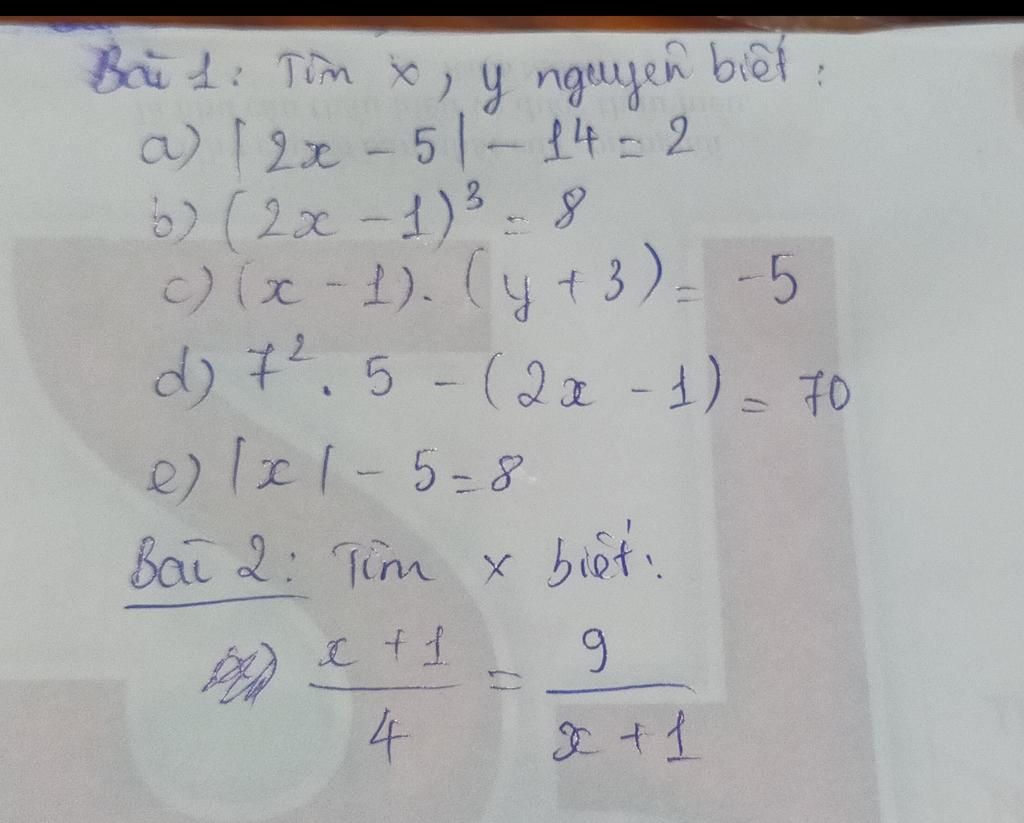 Bài 1: Tìm x, y nguyên biết:
a) |2x - 5| - 14 = 2
b) (2x - 1)³ = 8
c) (x - 1). (y + 3) = -5
d) 7². 5 - (2x - 1) = 70
e) |x| - 5 = 8
Bài 2: Tìm x biết:
x + 1 / 4 = 9 / x + 1